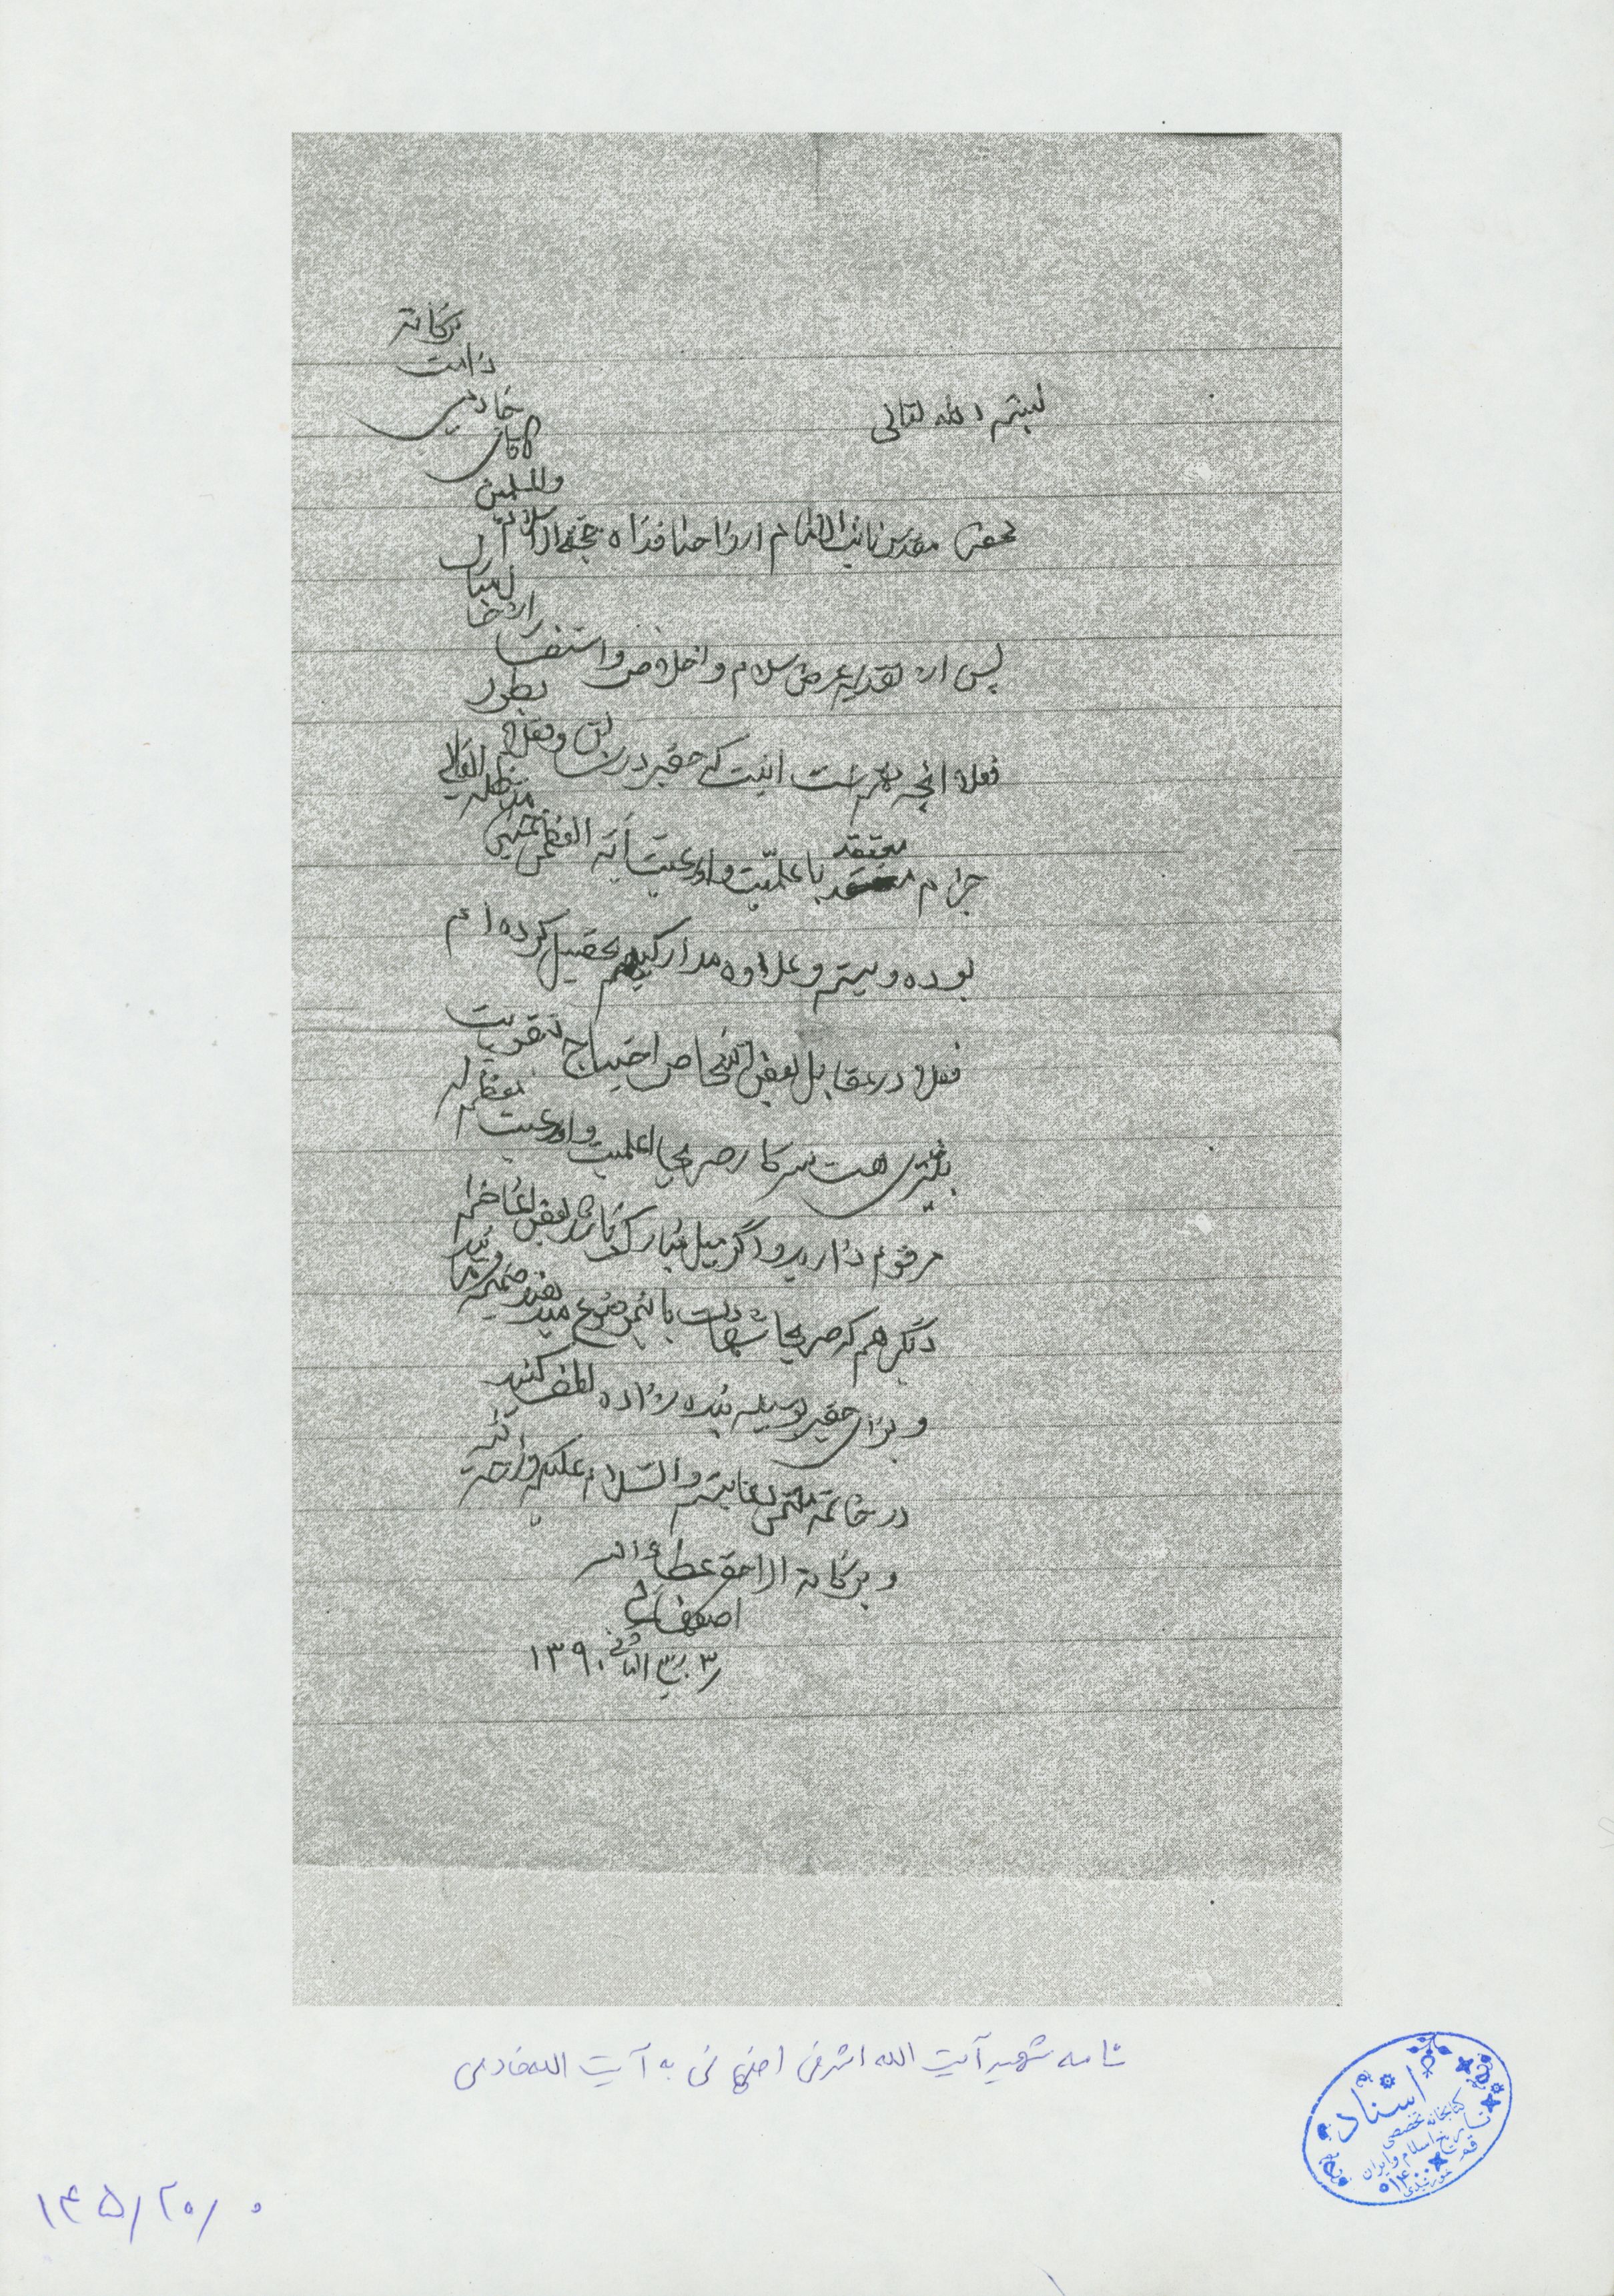 بسم الله تعالی
محضر مقدس نائب الامام ارواحنا فداه حجة الاسلام
والمسلمین
آقای
خادمی
دامت
برکاته
پس از تقدیم عرض سلام و اخلاص و استفسار از حال مبارک
فعلا آنچه مهم است اینست که حقیر در سابق و فعلا بطور
جزم معتقد باعلمیت و اورعیت آیة العظمی خمینی مد ظله العالی
بوده و هستم و علاوه مدارکی هم تحصیل کرده‌ام
فعلا در مقابل بعض اشخاص احتیاج بتقویت
بیشتری هست سرکار صریحا اعلمیت و اورعیت معظم له
مرقوم دارید و اگر میل مبارک باشد بعض اعاظم
دیگر هم که صریحا شهادت باینموضوع میدهند ضمیمه فرمائید
و برای حقیر بوسیله بنده زاده لطف کنید
در خاتمه ملتمس دعایتم والسلام علیکم و رحمة الله
و برکاته الاحقر عطاء الله
اصفهانی
۳ ربیع الثانی ۱۳۹۰
نامه شهید آیت الله اشرفی اصفهانی به آیت الله خادمی
اسناد
کتابخانه تخصصی
تاریخ اسلام و ایران
قم
۱۴۵/۲۰/۰